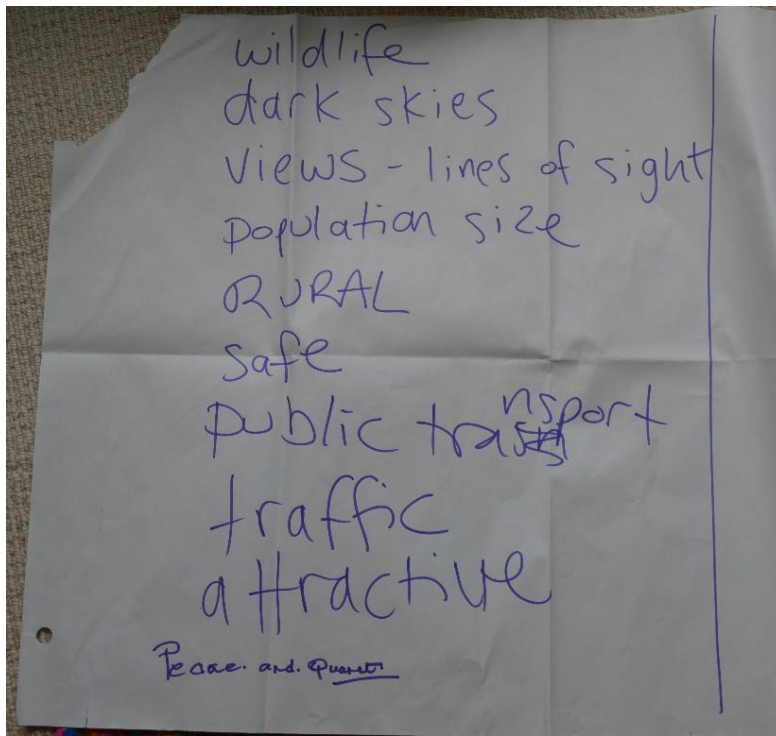 wildlife
dark skies
views - lines of sight
population size
RURAL
safe
public transport
traffic
attractive
Peace. and.